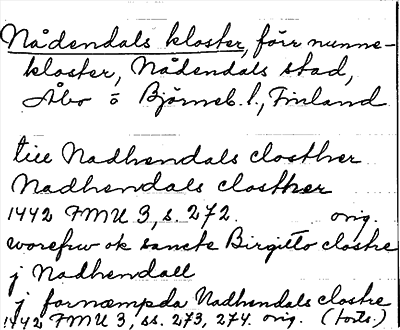 Nådendals kloster, förr nunne-
kloster, Nådendals stad,
Åbo o Björneb. l., Finland
till Nadhendals closther
Nadhendals closther
1442 FMU 3, s. 272. orig.
worefrw ok sancte Birgitto clostre
j Nadhendall
j fornempda Nadhendals clostre
1442 FMU 3, ss. 273, 274. orig. (forts.)